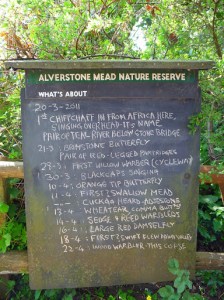 ALVERSTONE MEAD NATURE RESERVE
WHAT'S ABOUT
20-3-2011
1st CHIFFCHAFF IN FROM AFRICA HERE,
SINGING OVERHEAD-IT'S NAME
PAIR OF TEAL-RIVER BELOW STONE BRIDGE
21-3 BRIMSTONE BUTTERFLY
PAIR OF RED-LEGGED PARTRIDGES
29-3 FIRST WILLOW WARBLER (CYCLEWAY)
30-3 BLACKCAPS SINGING
10-4 ORANGE TIP BUTTERFLY
11-4 FIRST SWALLOW MEAD
CUCKOO HEARD
13-4 WHEATEAR COMMA
14-4 SEDGE & REED WARBLERS
16-4 LARGE RED DAMSELFLY
18-4 FIRST SWIFT FLEW
23-4 WOOD WARBLER THIS COPSE